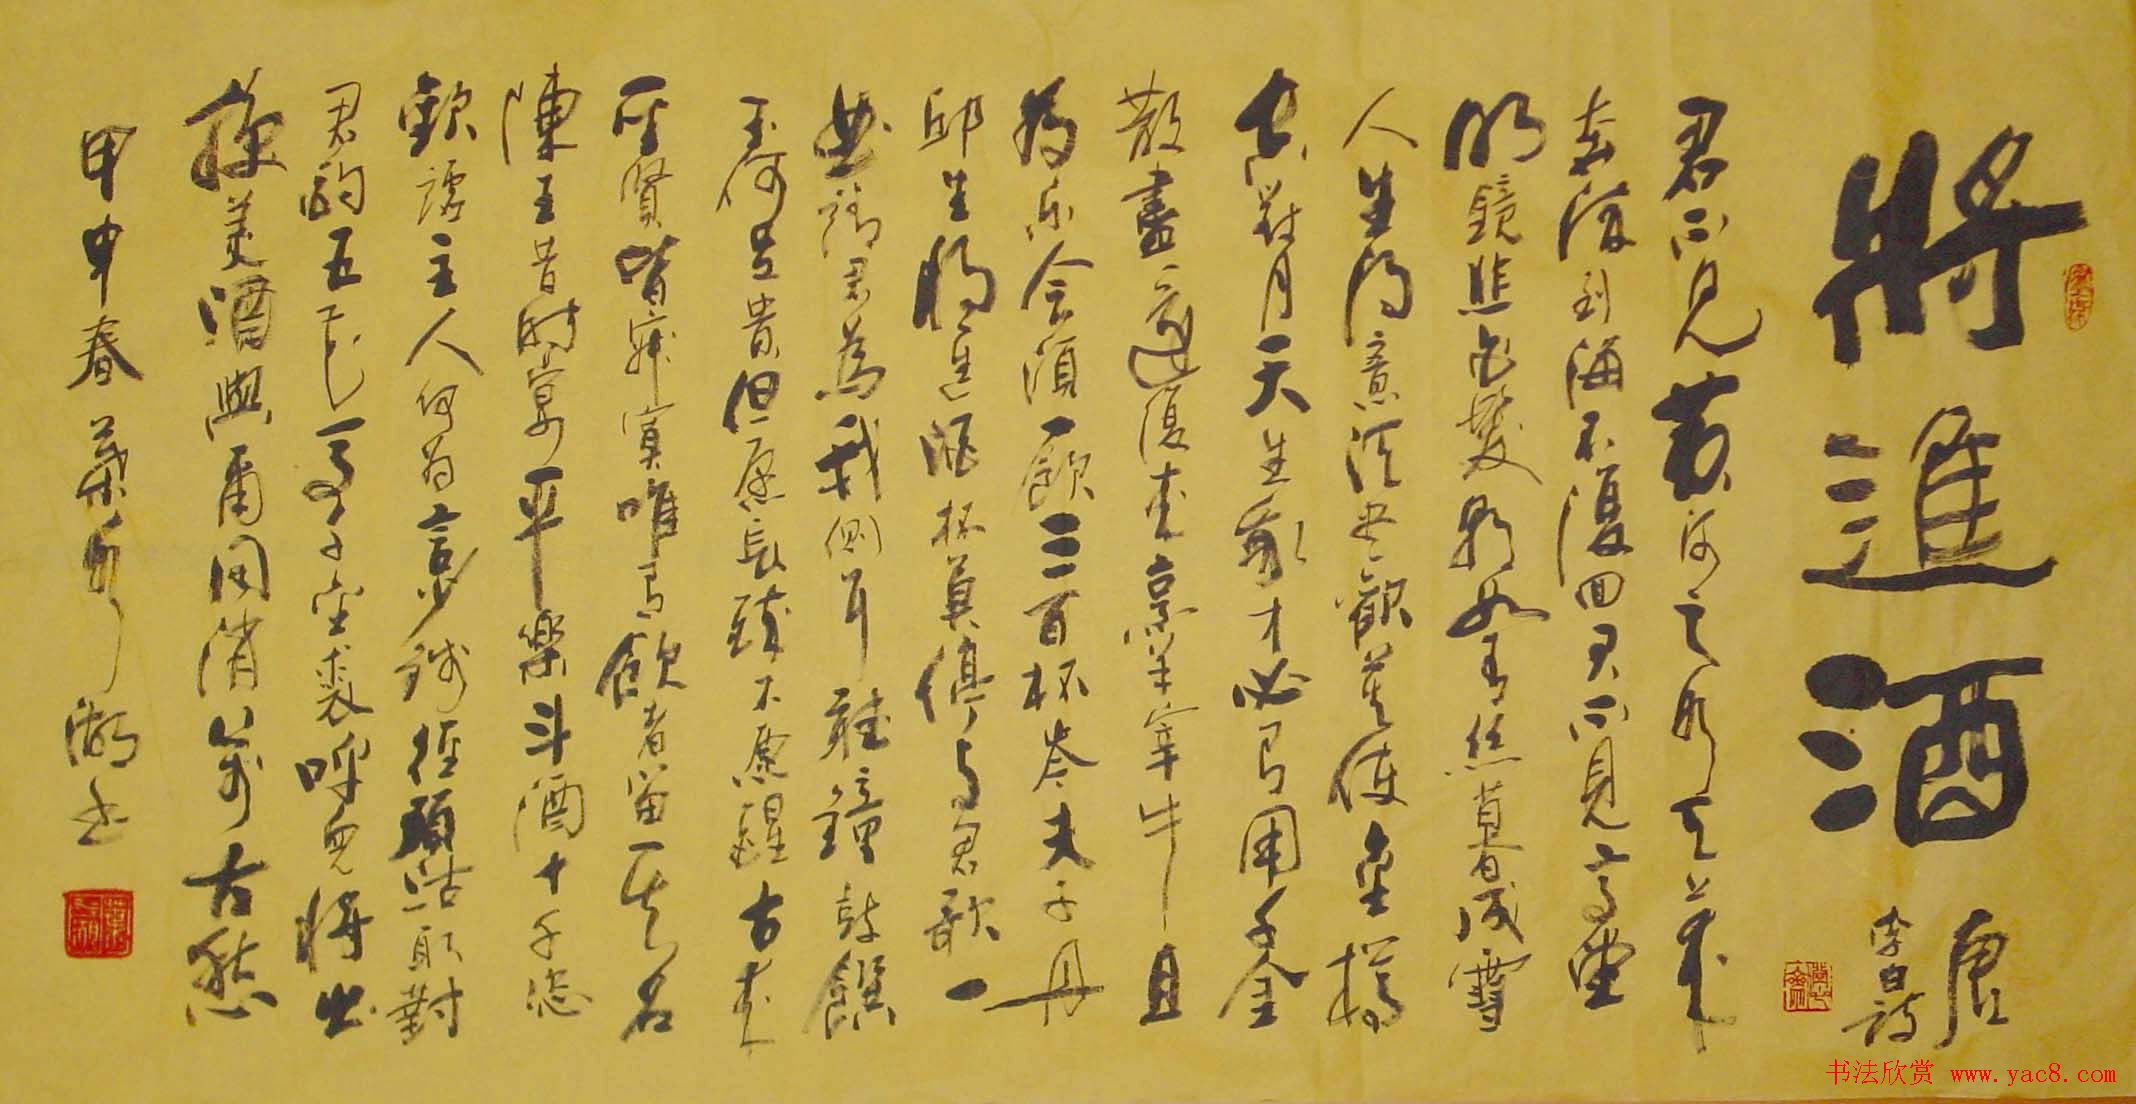 將進酒
唐
李白詩
君不見黃河之水天上來
奔流到海不復回君不見高堂
明鏡悲白髮朝如青絲暮成雪
人生得意須盡歡莫使金樽
空對月天生我才必有用千金
散盡還復來烹羊宰牛且
为乐会須一飲三百杯岑夫子丹
邱生將進酒杯莫停与君歌一
曲請君為我側耳聽鐘鼓饌
玉何足貴但愿長醉不愿醒古來
聖賢皆寂寞唯有飲者留其名
陳王昔時宴平樂斗酒十千恣
歡謔主人何为言少錢徑須沽取對
君酌五花馬千金裘呼兒將出
換美酒與爾同消萬古愁
甲申春葉湖書
书法欣赏 www.yac8.com